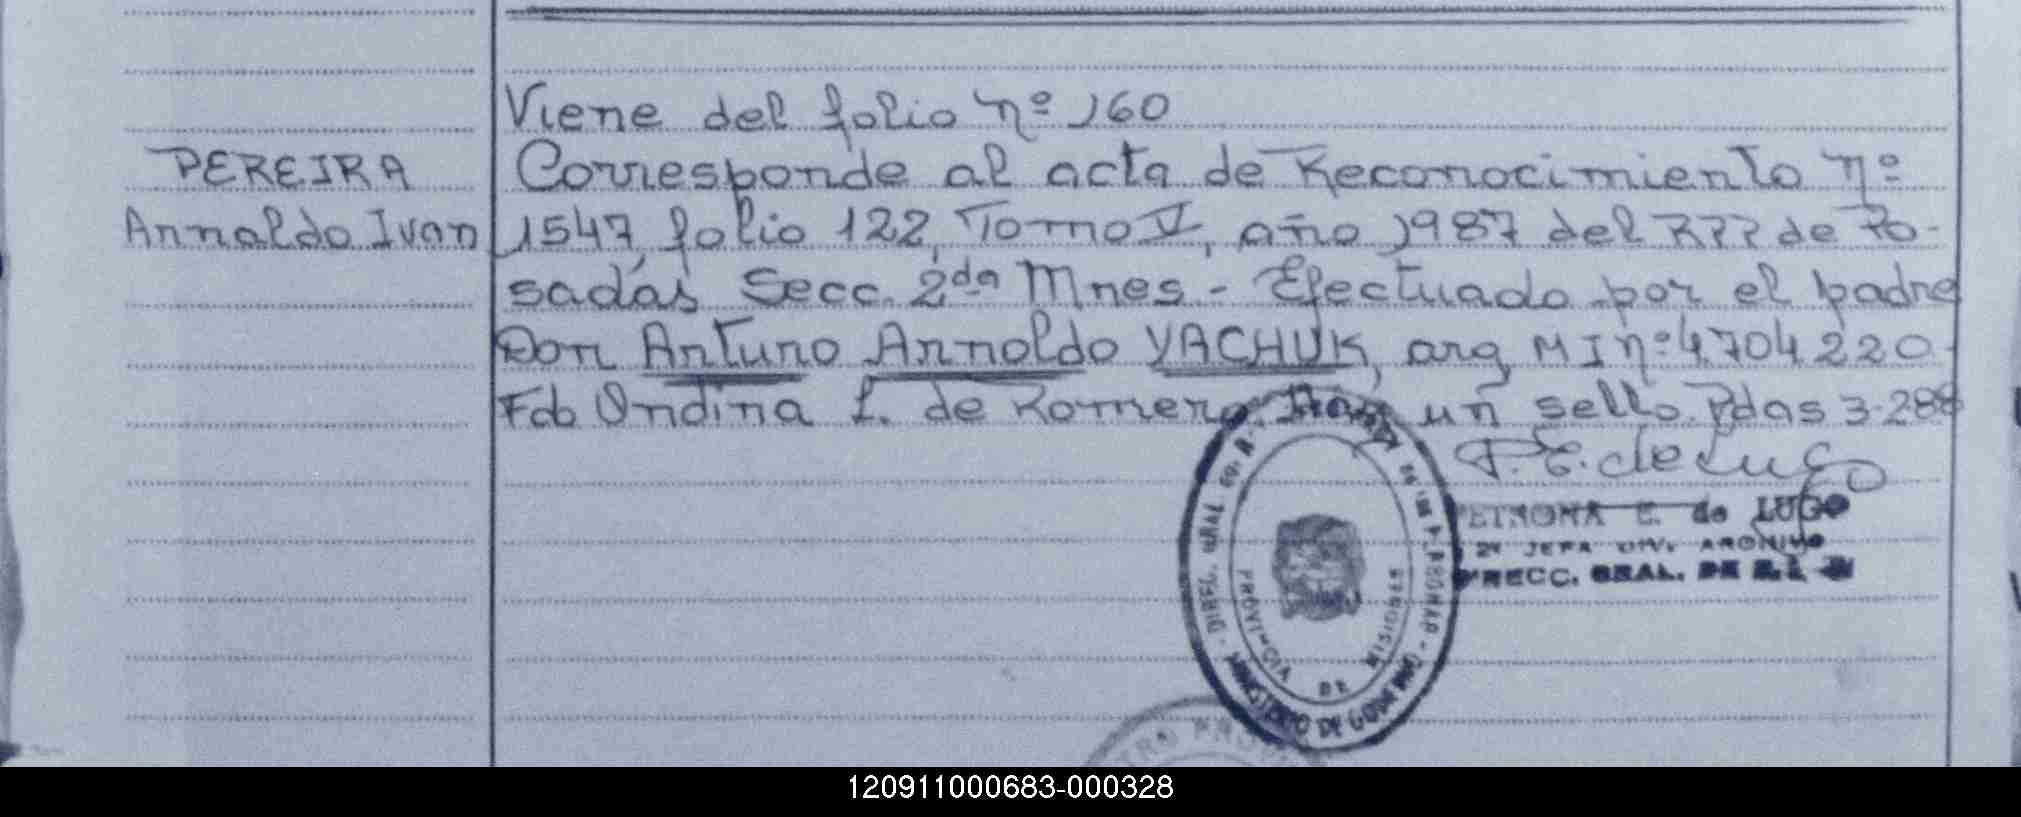 Viene del folio nº 160
PEREIRA
Arnaldo Ivan
Corresponde al acta de Reconocimiento nº
1547, folio 122, Tomo V, año 1987 del RPP de Po-
sadas Secc. 2da Mnes - Efectuado por el padre
Don Arturo Arnoldo YACHUK, arg MI nº 4.704.220-
Fdo Ondina L. de Romero Hay un sello. Pdas 3-2-88
P. E. de Lugo
PETRONA E. de LUGO
2º JEFA DIV. ARCHIVO
DIRECC. GRAL. DE
DIREC. GRAL
PROVINCIA DE MISIONES
MINISTERIO DE GOBIERNO
120911000683-000328